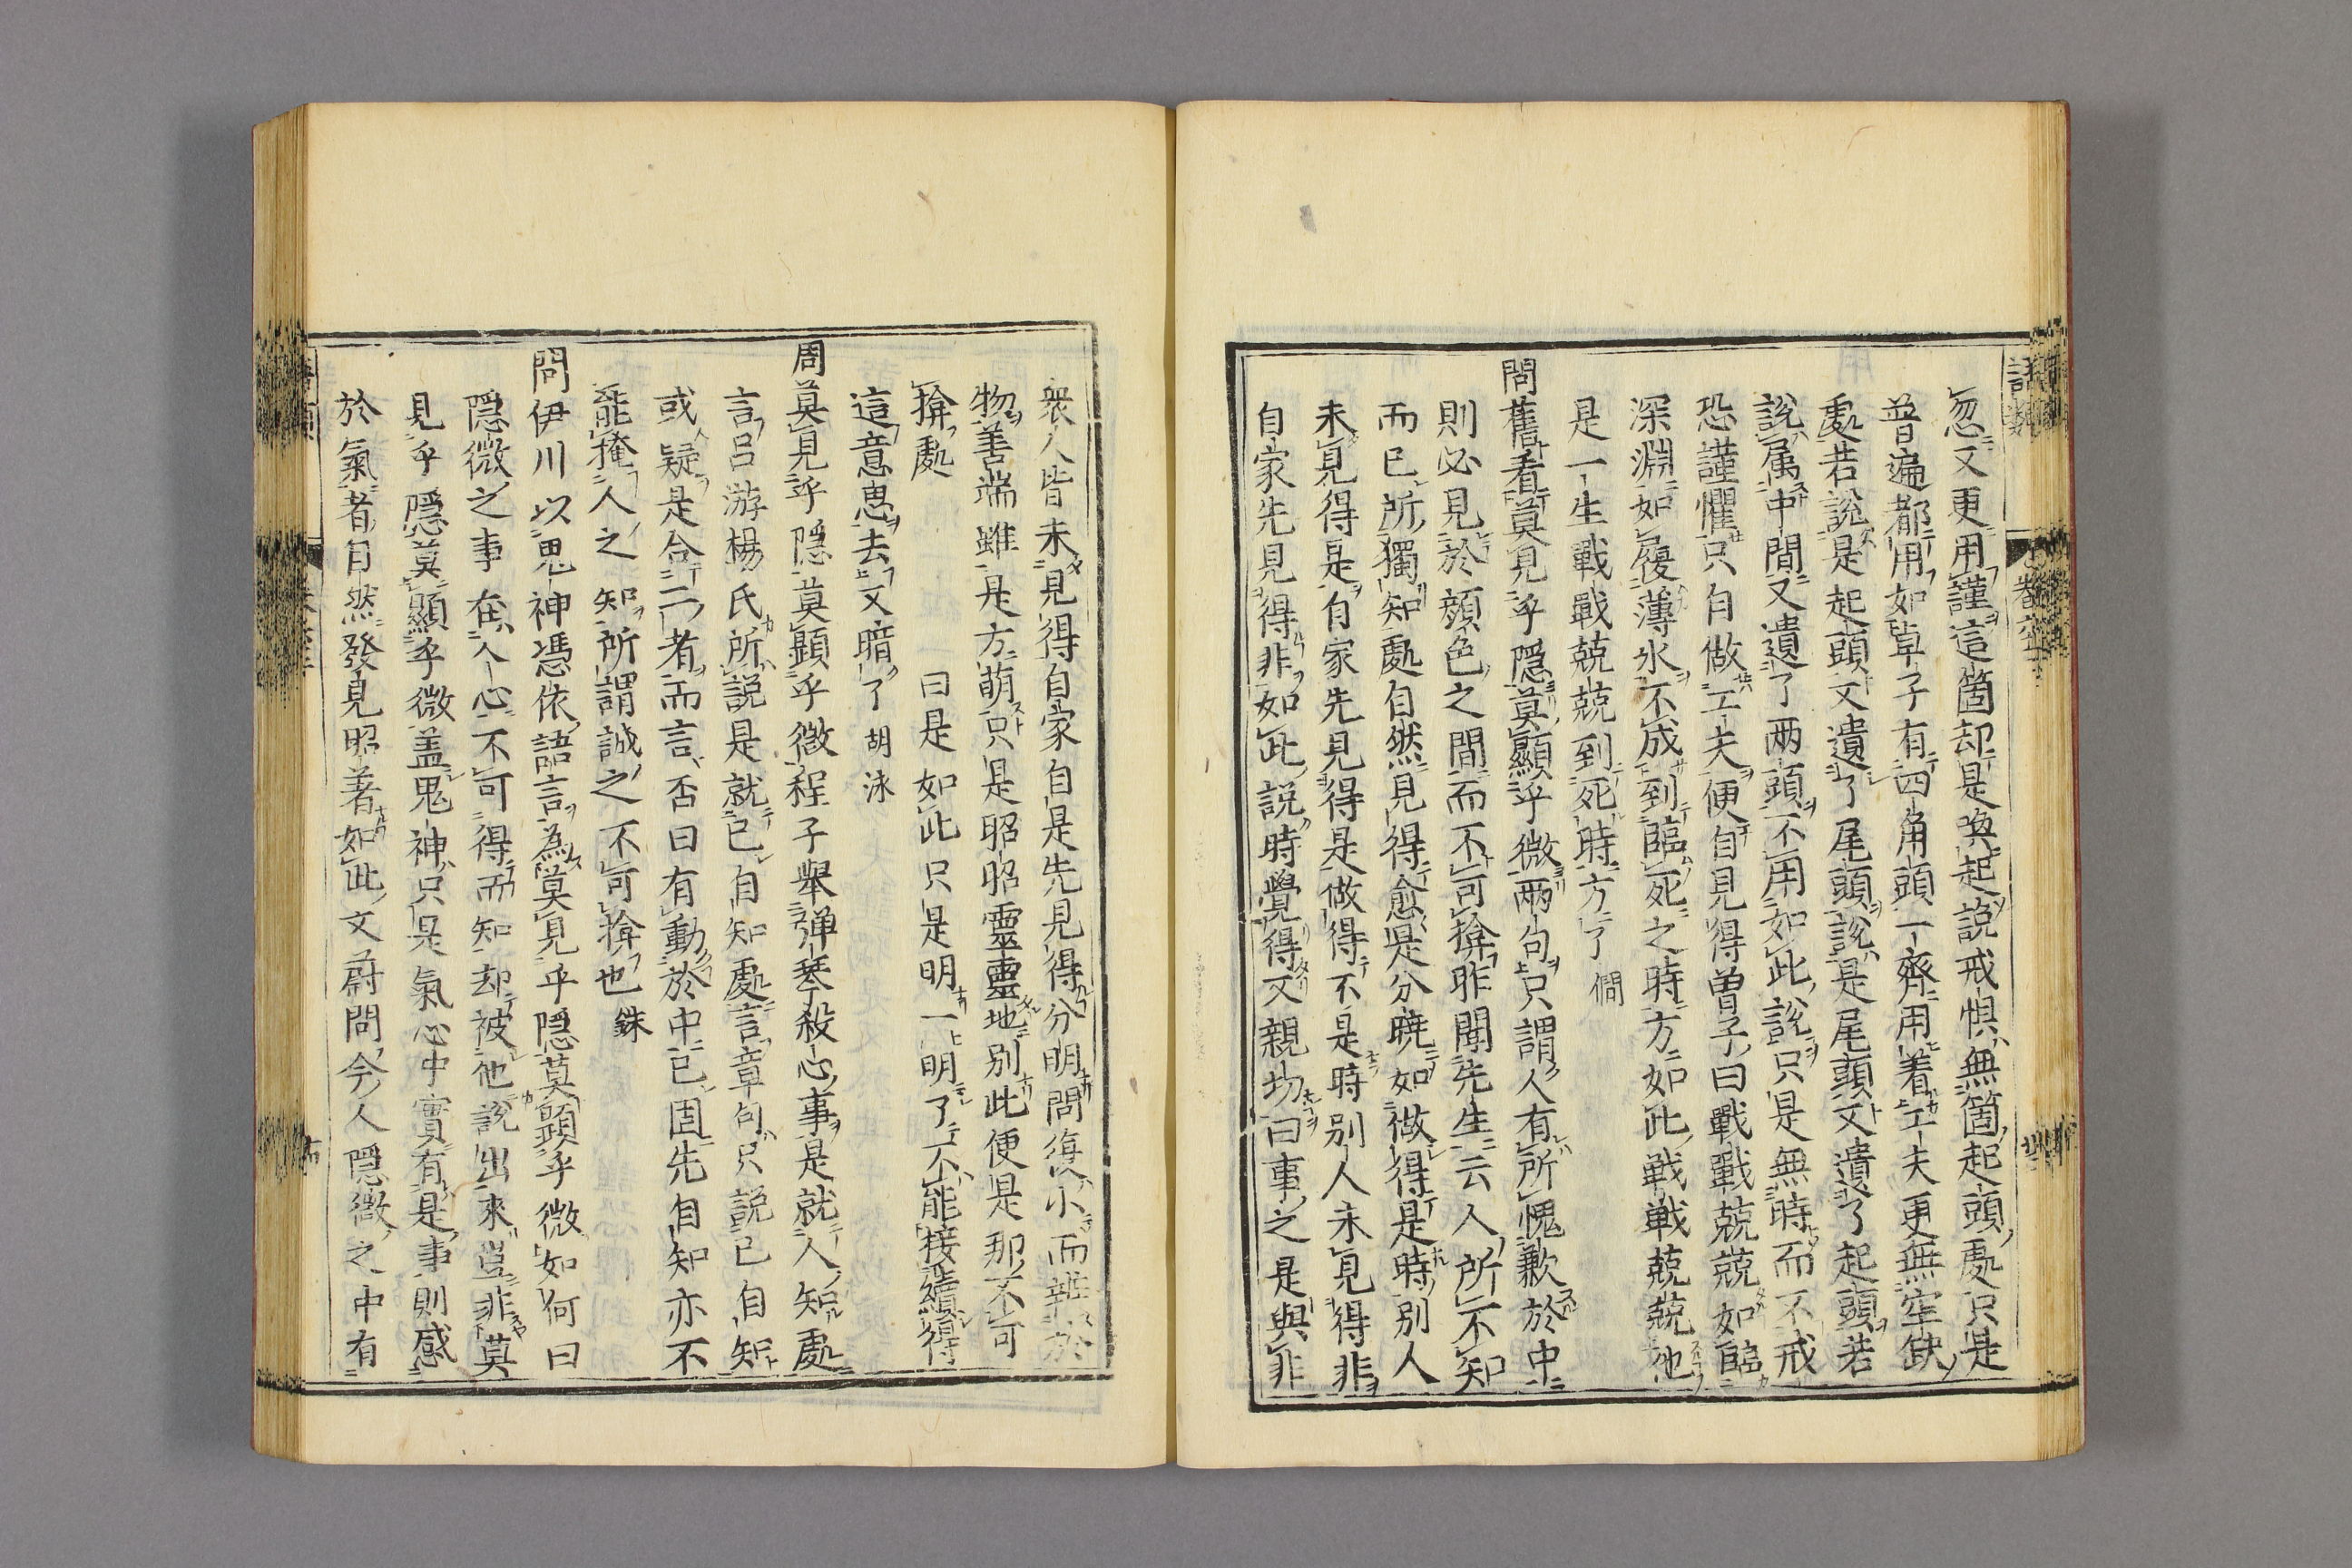 忽又更用謹這箇却是喚起說戒惧無箇起頭處只是
普遍都用如卓子有四角頭一齊用着工夫更無空缺
處若說是起頭又遺了尾頭說是尾頭又遺了起頭若
說属中間又遺了两頭不用如此說只是無時而不戒
恐謹懼只自做工夫便自見得曽子曰戰戰兢兢如臨
深淵如履薄氷不成到臨死之時方如此戰戰兢兢他
是一生戰戰兢兢到死時方了 僩
問舊看莫見乎隱莫顯乎微两句只謂人有所愧歉於中
則必見於顏色之間而不可揜昨聞先生云人所不知
而已所獨知處自然見得愈是分曉如做得是時別人
未見得是自家先見得是做得不是時別人未見得非
自家先見得非如此說時覺得又親切曰事之是與非
衆人皆未見得自家自是先見得分明問復小而辨於
物善端雖是方萌只是昭昭靈靈地別此便是那不可
揜處 曰是如此只是明一明了不能接續得
這意思去又暗了 胡泳
問莫見乎隱莫顯乎微程子舉弹琴殺心事是就人知處
言呂游楊氏所說是就已自知處言章句只說已自知
或疑是合二者而言否曰有動於中已固先自知亦不
能掩人之知所謂誠之不可揜也 銖
問伊川以思神憑依語言為莫見乎隱莫顯乎微如何曰
隱微之事在人心不可得而知却被他說出來豈非莫
見乎隱莫顯乎微盖鬼神只是氣心中實有是事則感
於氣者自然發見昭著如此文蔚問今人隱微之中有